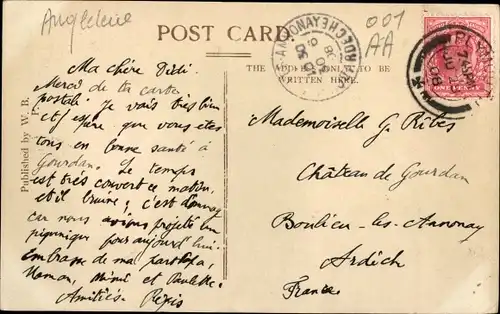 Angleterre
001
AA
POST CARD.
THE ADDRESS ONLY TO BE
WRITTEN HERE.
Published by W. B. P.
Ma chère Didi.
Merci de ta carte
postale. Je vais très bien
et j'espère que vous êtes
tous en bonne santé à
Gourdan. Le temps
est très couvert ce matin,
et il bruine; c'est
car nous avions projeté un
piquenique pour aujourd'hui.
Embrasse de ma part Papa,
Maman, Mimi et Paulette.
Amitiés.
Mademoiselle G. Ribes
Château de Gourdan
Boulieu-les-Annonay
Ardèch
France
ONE PENNY